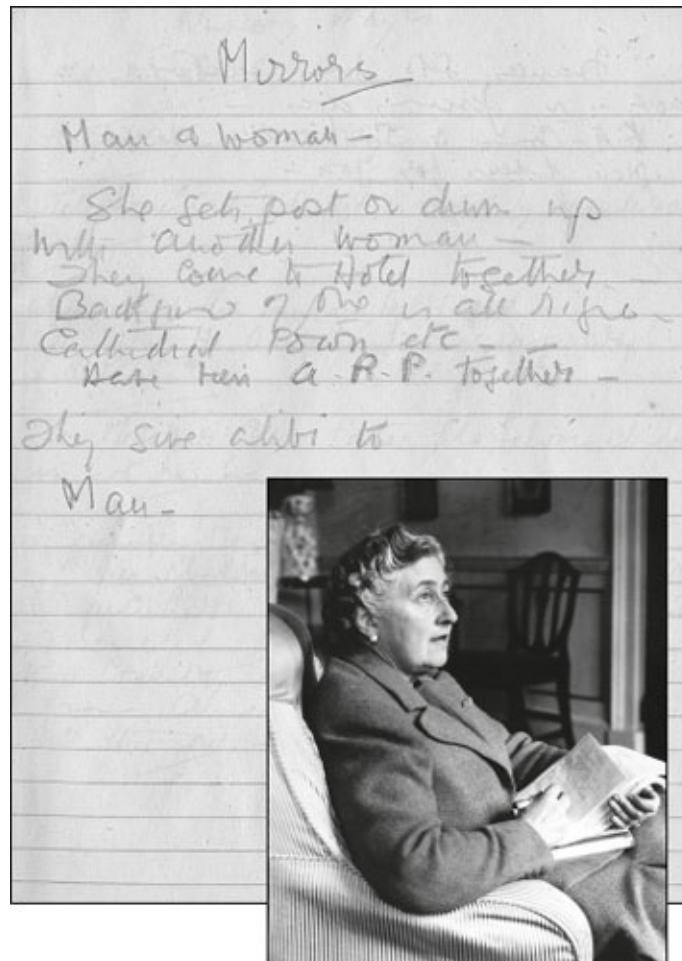 Mirrors
Man & woman –
She gets post or chum up
with another woman –
They come to Hotel together –
Background of one is all right –
Cathedral Town etc – –
Have been A.R.P. together –
They give alibi to
Man –